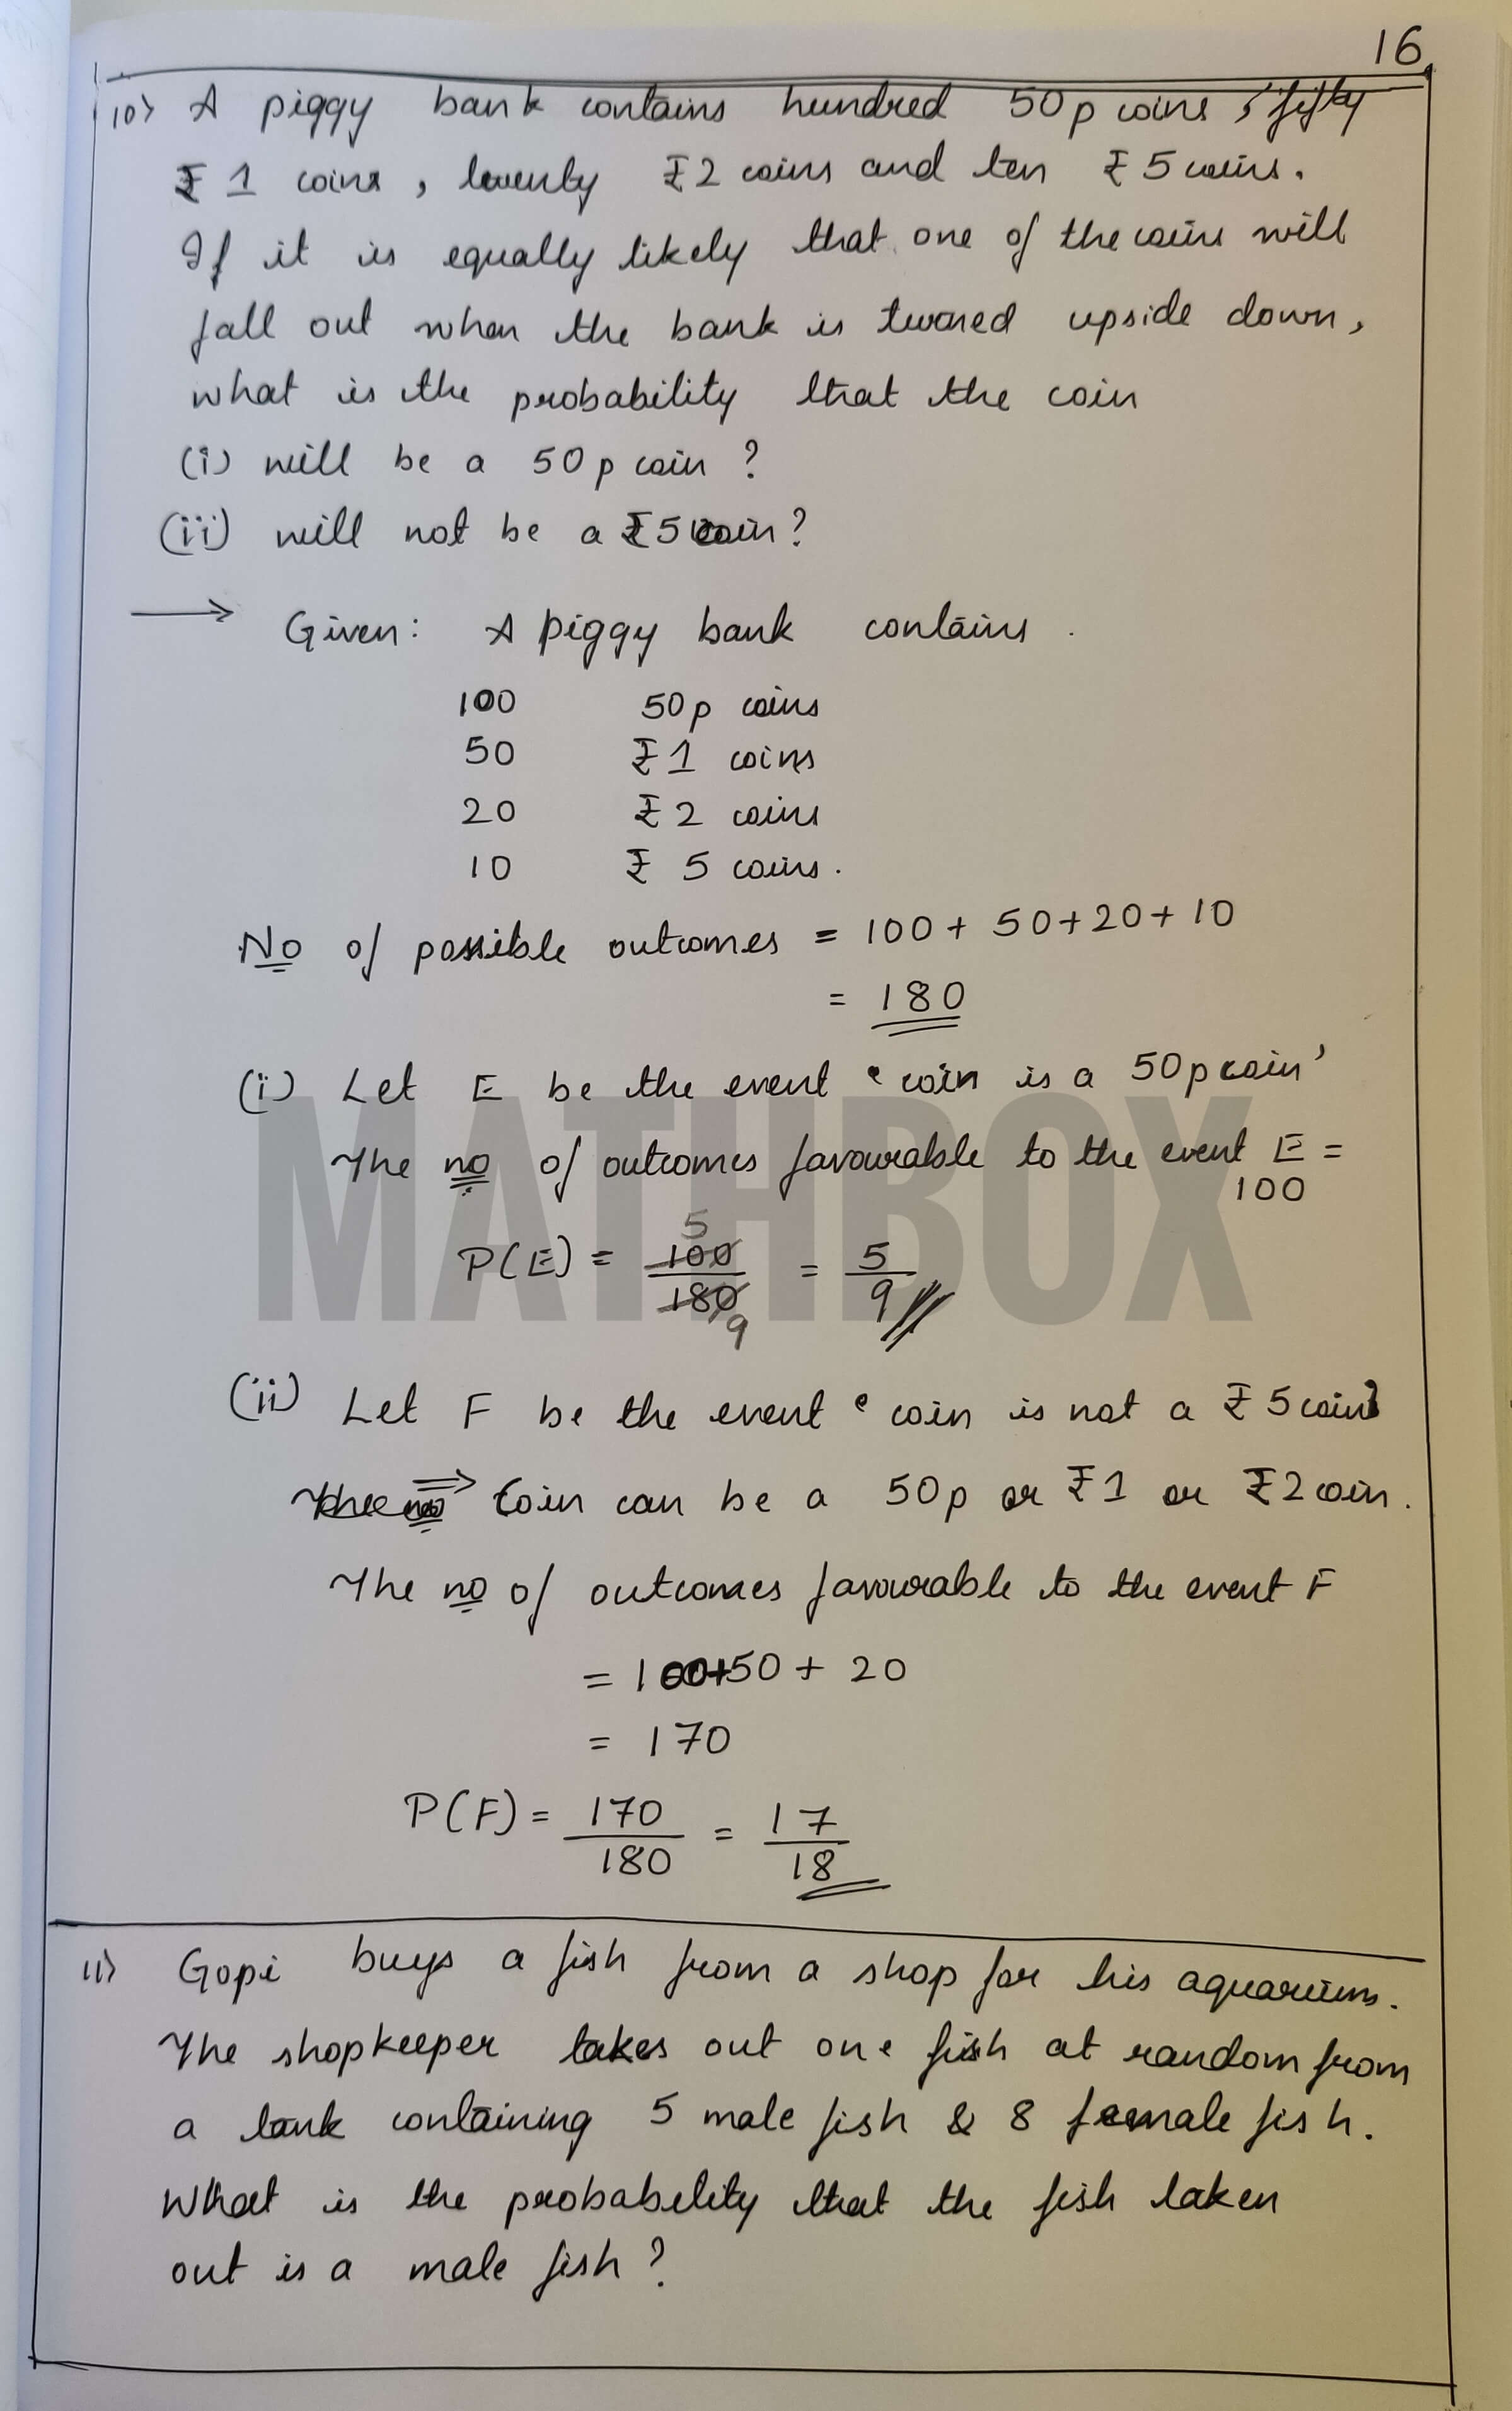 16
10) A piggy bank contains hundred 50p coins, fifty
₹1 coins, twenty ₹2 coins and ten ₹5 coins.
If it is equally likely that one of the coins will
fall out when the bank is turned upside down,
what is the probability that the coin
(i) will be a 50p coin?
(ii) will not be a ₹5 coin?
→ Given: A piggy bank contains.
100 50p coins
50 ₹1 coins
20 ₹2 coins
10 ₹5 coins.
No of possible outcomes = 100+50+20+10
= 180
(i) Let E be the event 'coin is a 50p coin'
The no of outcomes favourable to the event E =
100
P(E) = 100/180 = 5/9
5
9
(ii) Let F be the event 'coin is not a ₹5 coin'
The no ⇒ Coin can be a 50p or ₹1 or ₹2 coin.
The no of outcomes favourable to the event F
= 100+50+20
= 170
P(F) = 170/180 = 17/18
11) Gopi buys a fish from a shop for his aquarium.
The shopkeeper takes out one fish at random from
a tank containing 5 male fish & 8 female fish.
What is the probability that the fish taken
out is a male fish?
MATHBOX